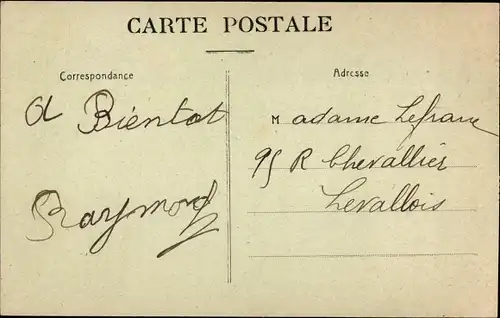 CARTE POSTALE
Correspondance
Adresse
a Bientot
Raymond
Madame Lefranc
95 R Chevallier
Levallois